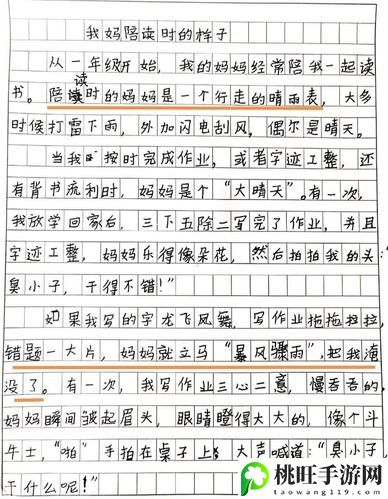 我妈陪读时的样子
从一年级开始，我的妈妈经常陪我一起读
书。陪读时的妈妈是一个行走的晴雨表，大多
时候打雷下雨，外加闪电刮风，偶尔是晴天。
当我时按时完成作业，或者字迹工整，还
有背书流利时，妈妈是个“大晴天”。有一次，
我放学回家后，三下五除二写完了作业，并且
字迹工整，妈妈乐得像朵花，然后拍拍我的头：“
臭小子，干得不错！”
如果我写的字龙飞凤舞，写作业拖拖拉拉，
错题一大片，妈妈就立马“暴风骤雨”，把我淹
没了。有一次，我写作业三心二意，慢吞吞的，
妈妈瞬间皱起眉头，眼睛瞪得大大的，像个斗
牛士，“啪”手拍在桌子上，大声喊道：“臭小子，
干什么呢！”
桃旺手游网
taowang119.com